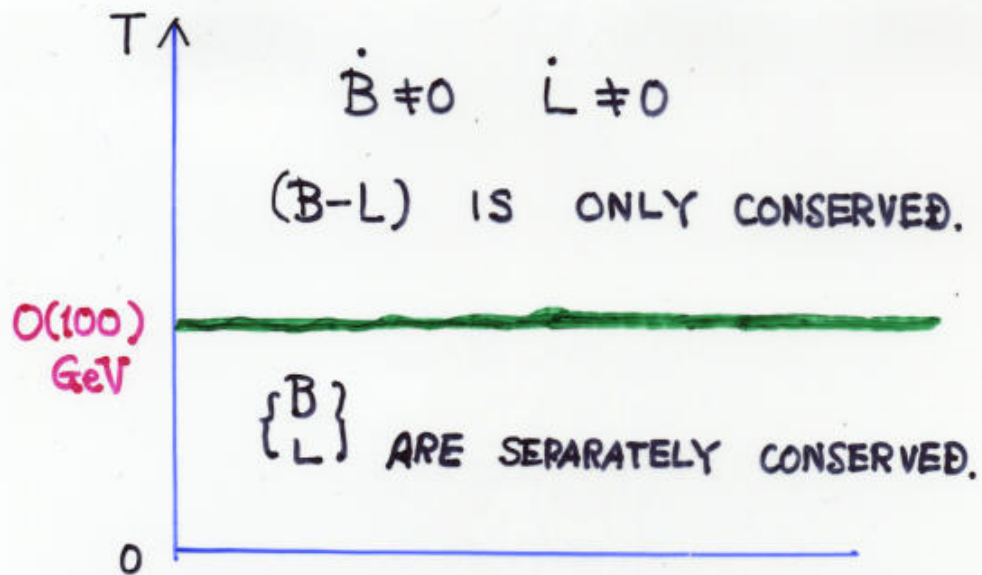 T
Ḃ ≠ 0 L̇ ≠ 0
(B-L) IS ONLY CONSERVED.
O(100)
GeV
{B
L} ARE SEPARATELY CONSERVED.
0